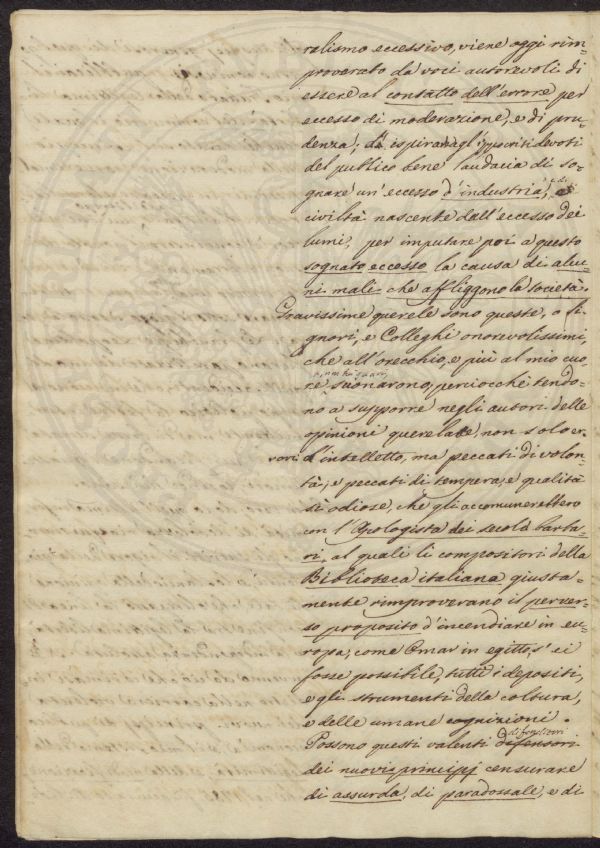 ralismo eccessivo, viene oggi rim-
proverato da voci autorevoli di
essere al contatto dell'errore per
eccesso di moderazione, e di pru-
denza; d' ispirar agl'ippocriti devoti
del publico bene l'audacia di so-
gnare un' eccesso d'industria, e di
civiltà nascente dall'eccesso dei
lumi, per imputare poi a questo
sognato eccesso la causa di alcu-
ni mali che affliggono la società.
Gravissime querele sono queste, o Si-
gnori, e Colleghi onorevolissimi,
che all'orecchio, e più al mio cuo-
re suonarono, perciocchè tendo-
no a supporre negli autori delle
opinioni querelate, non solo er-
rori d'intelletto, ma peccati di volon-
tà, e peccati di tempera, e qualità
sì odiose, che gli accomunerebbero
con l'Apologista dei secoli barba-
ri, al quale li compositori della
Biblioteca italiana giusta-
mente rimproverano il perver-
so proposito d'incendiare in eu-
ropa, come Omar in egitto, s' ei
fosse possibile, tutti i depositi,
e gli strumenti della coltura,
e delle umane cognizioni.
difenditori
Possono questi valenti difensori
dei nuovi principj censurare
di assurda, di paradossale, e di